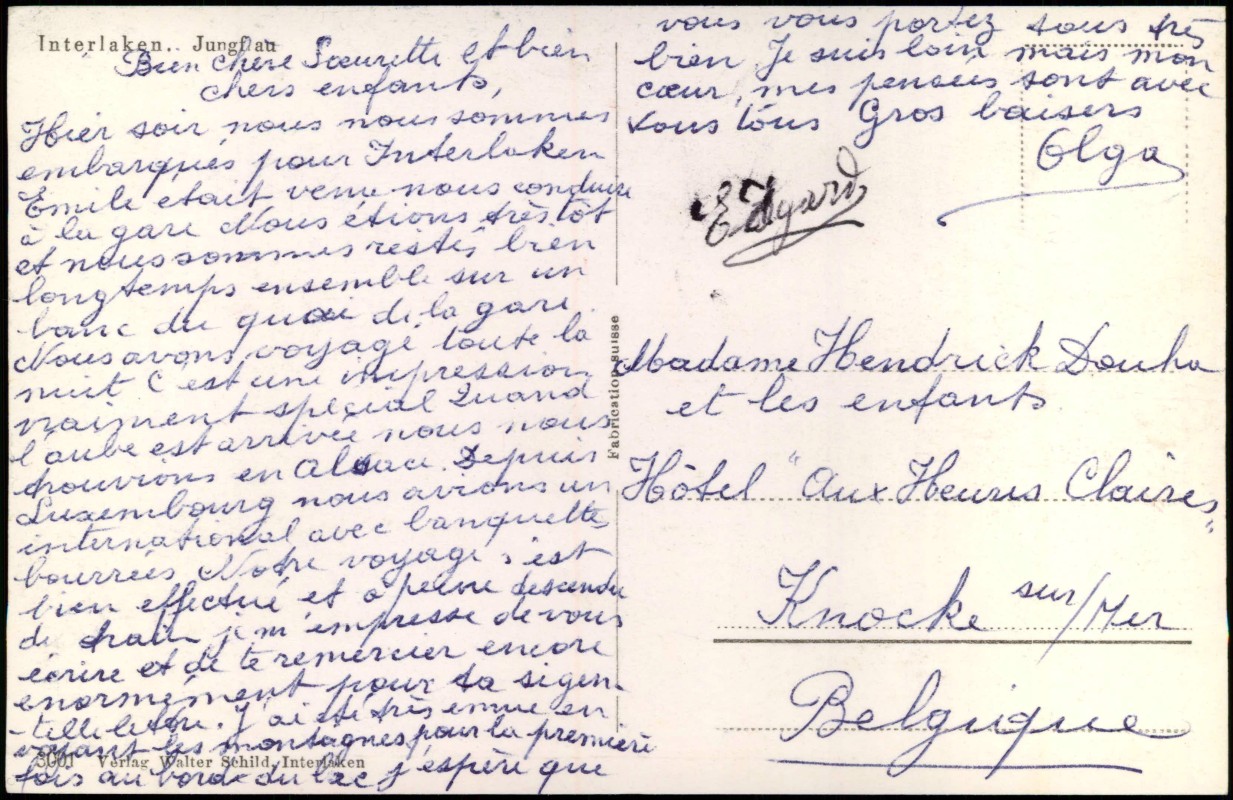 Interlaken. Jungfrau
Bien chère Soeurette et bien
chers enfants,
Hier soir nous nous sommes
embarqués pour Interlaken
Emile etait venu nous conduire
à la gare Nous étions très tôt
et nous sommes restés bien
longtemps ensemble sur un
banc du quai de la gare.
Nous avons voyagé toute la
nuit C'est une impression
vraiment spécial Quand
l'aube est arrivée nous nous
trouvions en Alsace. Depuis
Luxembourg nous avions un
international avec banquettes
bourrées Notre voyage s'est
bien effectué et à peine descendu
de train je m'empresse de vous
écrire et de te remercier encore
enormément pour ta si gen-
-tille lettre. J'ai été très emue en
voyant les montagnes pour la première
fois au bord du lac j'espère que
3001 Verlag Walter Schild, Interlaken
Fabrication suisse
vous vous portez tous très
bien Je suis loin mais mon
coeur, mes pensées sont avec
vous tous Gros baisers
Olga
Edgard
Madame Hendrick Douha
et les enfants
Hôtel "Aux Heures Claires"
Knocke sur/Mer
Belgique